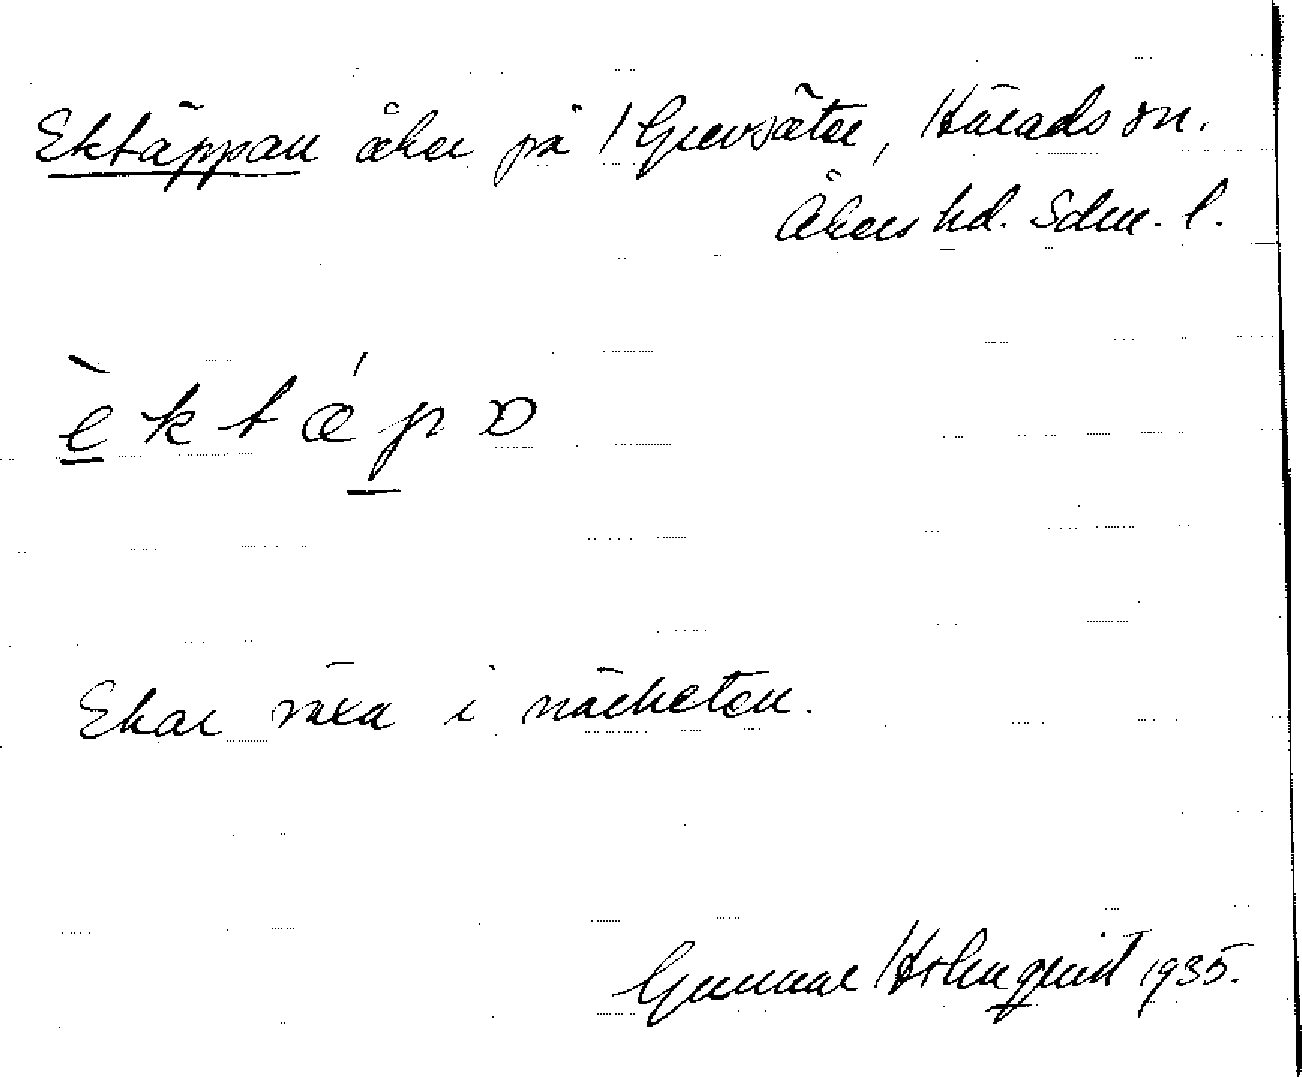 Ektäppan åker på 1 Grevsäter, Härads sn.
Åkers hd. Sdm. l.
è k t ǽ p ɒ
Ekar växa i närheten.
Gunnar Holmquist 1935.